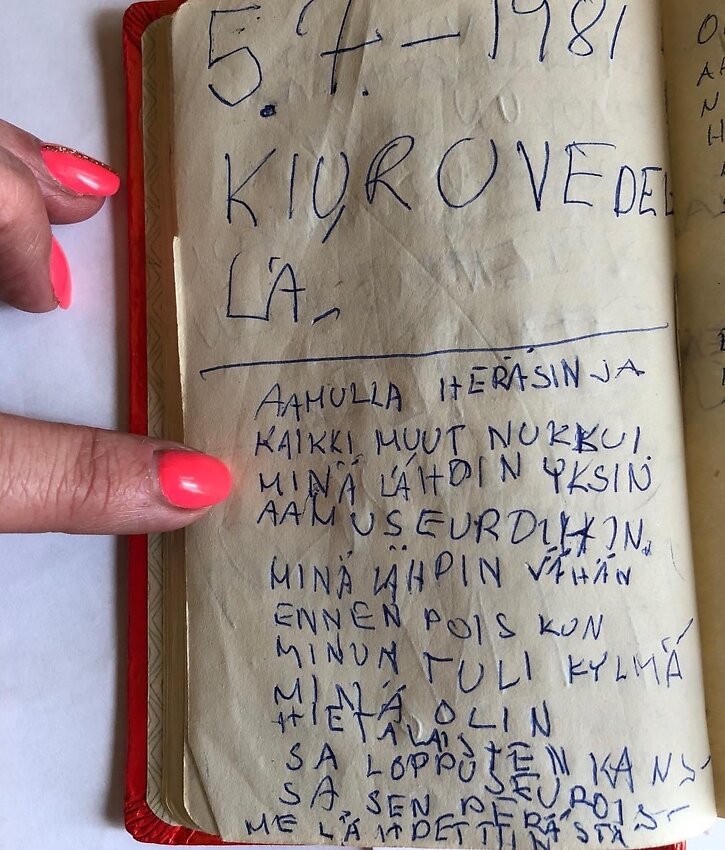 5.7.-1981
KIUROVEDEL
LÄ.
AAMULLA HERÄSIN JA
KAIKKI MUUT NUKKUI.
MINÄ LÄHDIN YKSIN
AAMUSEUROIHIN.
MINÄ LÄHDIN VÄHÄN
ENNEN POIS KUN
MINUN TULI KYLMÄ
MINÄ OLIN
HIETALAISTEN KANS-
SA LOPPUSEUROIS-
SA SEN PERÄSTÄ
ME LÄHDETTIIN